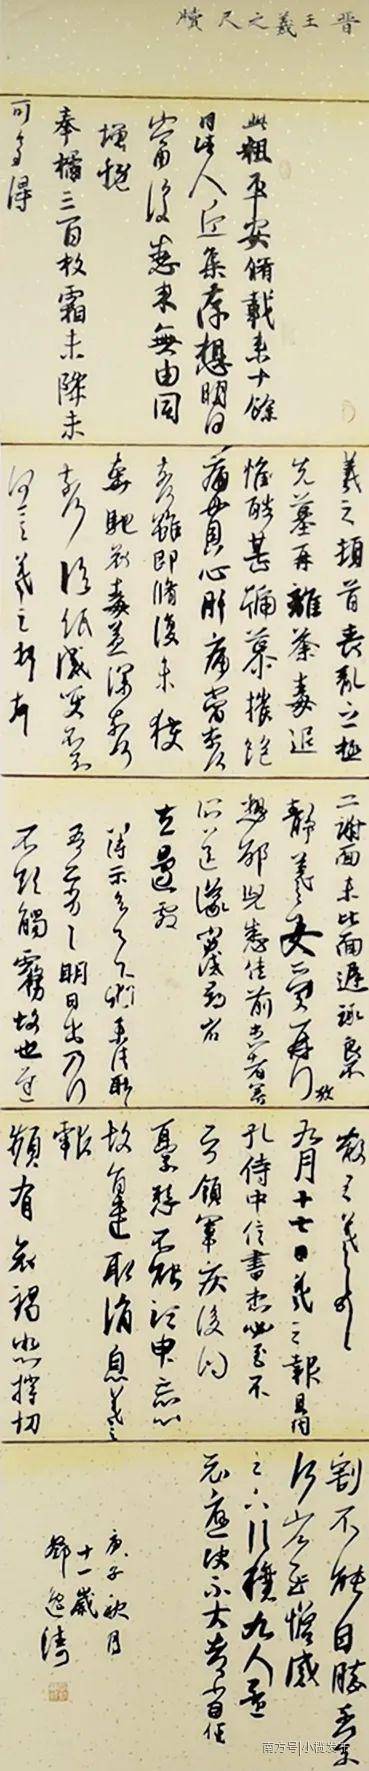 晋王羲之尺牘
此粗平安脩載來十餘
日諸人近集存想明日
當復悉來無由同
增慨
奉橘三百枚霜未降未
可多得
羲之頓首喪亂之極
先墓再離荼毒追
惟酷甚號慕摧絕
痛貫心肝痛當奈何
奈何雖即脩復未獲
奔馳哀毒益深奈何
奈何臨紙感哽不知
何言羲之頓首頓首
二謝面未比面遲詠良不
靜羲之女愛再拜
想邰兒悉佳前患者善
所送議當試尋省
左邊劇
得示知足下猶未佳耿耿
吾亦劣劣明日出乃行
不欲觸霧故也遲
散王羲之頓首
九月十七日羲之報且因
孔侍中信書想必至不
知領軍疾後問
憂懸不能須臾忘心
故旨遣取消息羲之
報
頻有哀禍悲摧切
割不能自勝奈何
奈何省慰增感
足下行穰九人還
示應決不大都當佳
庚子秋月
十一歲
鄧逸
南方号|小榄发布